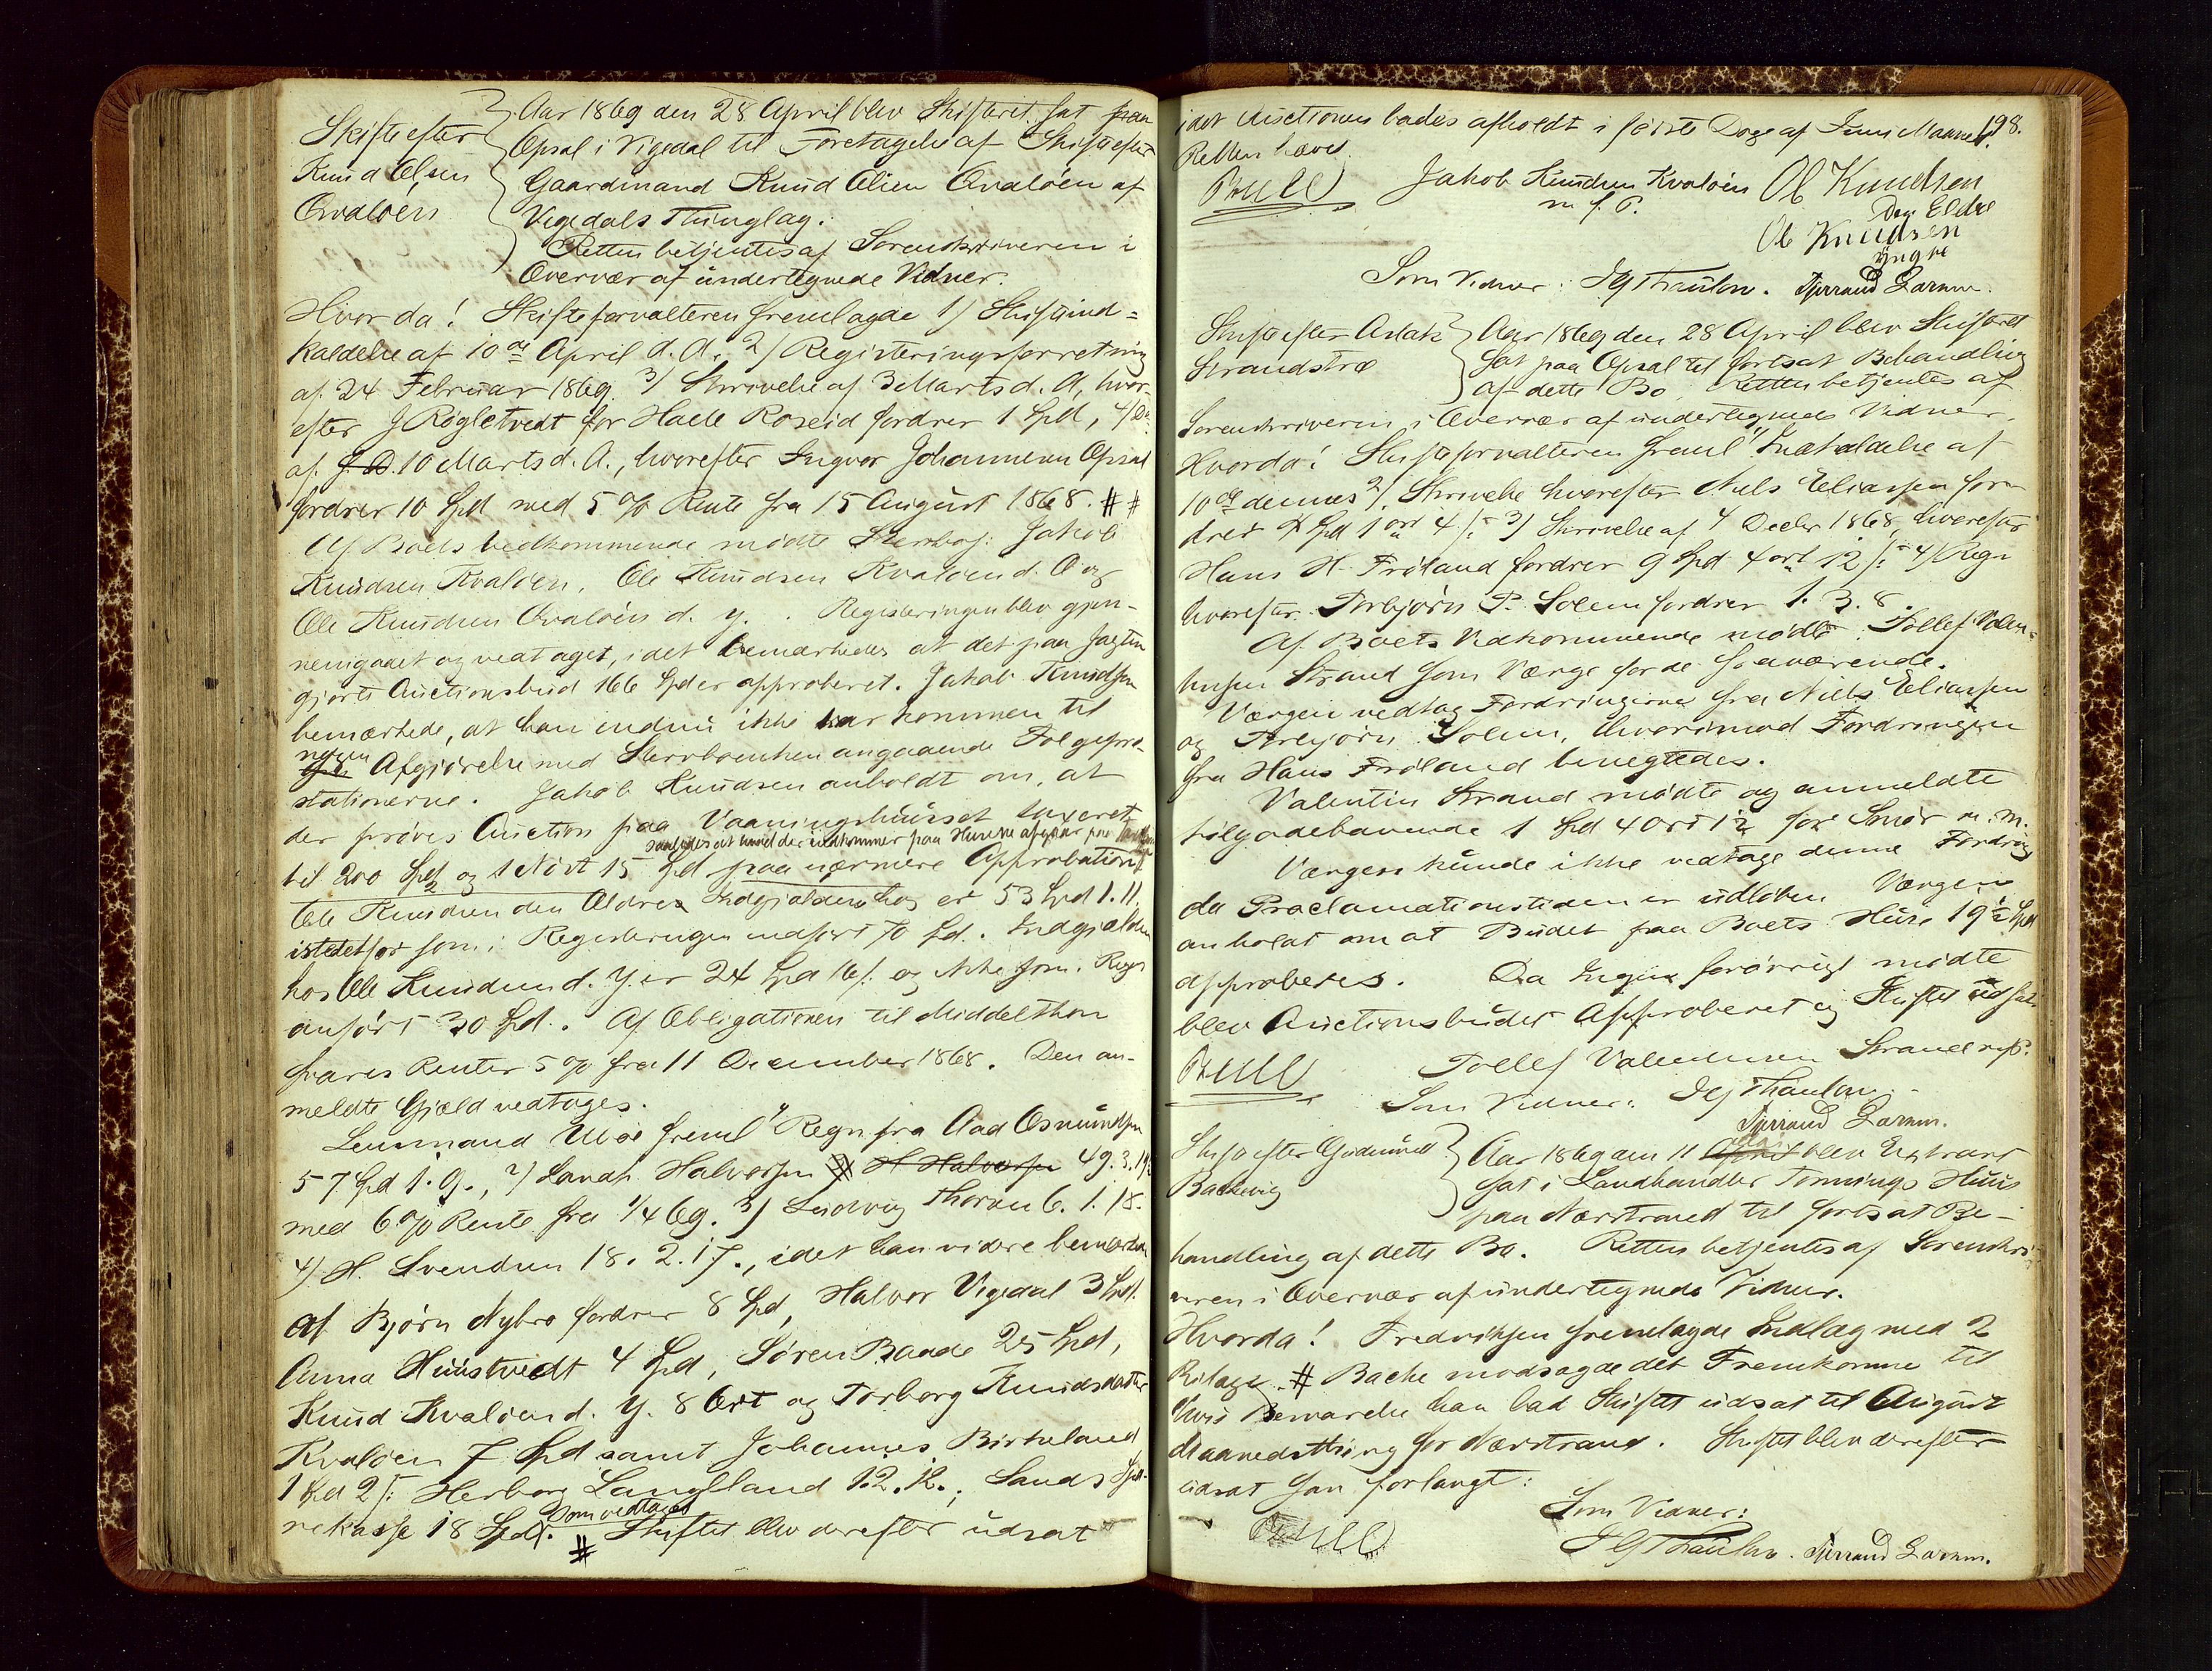 Skifte efter
Knud Olsen
Qvaløen
Aar 1869 den 28 April blev Skifteret sat paa
Opsal i Vigedal til Foretagelse af Skifte efter
Gaardmand Knud Olsen Qvaløen af
Vigedals Thinglag.
Retten betjentes af Sorenskriveren i
Overvær af undertegnede Vidner.
Hvorda! Skifteforvalteren fremlagde 1) Skifteind=
kaldelse af 10de April d. A. 2) Registeringsforretning
af 24 Februar 1869. 3) Skrivelse af 3 Marts d. A, hvor-
efter J Røgletvedt for Halle Roseid fordrer 1 Spd, 4) Do
af 10 Marts d. A., hvorefter Ingvor Johannesen Opsal
fordrer 10 Spd med 5 % Rente fra 15 August 1868. #
Af Boets Vedkommende mødte Jakob
Knudsen Kvaløen, Ole Knudsen Kvaløen d. Æ og
Ole Knudsen Qvaløen d. y. Registeringen blev gjen-
nemgaaet og vedtaget, idet bemærkedes at det paa Jagten
gjorte Auctionsbud 166 Spd er approberet. Jakob Knudsen
bemærkede, at han endnu ikke var kommen til
nogen Afgjørelse med Stervboenken angaaende Folgepræ-
stationerne. Jakob Knudsen anholdt om, at
der prøves Auction paa Vaaningshuset taxeret
saaledes at hvad der indkommer paa Husene afgaar paa
til 200 Spd og 1 Nøst 15 Spd paa nærmere Approbation
Ole Knudsen den Ældres Indgjæld er 53 Spd 1. 11.
istedetfor som i Registeringen indført 70 Spd. Indgjælden
hos Ole Knudsen d. y. er 24 Spd 16 s. og ikke som i Regn
anført 30 Spd. Af Obligationen til Middelthon
svares Renter 5 % fra 11 December 1868. Den an-
meldte Gjæld vedtages.
Lensmand freml 1) Regn fra Aad Osmundsen
57 Spd 1. 9., 2) Landh. Halvorsen 49. 3. 19
med 6 % Rente fra 1/4 69. 3) Ludvig Thorsen 6. 1. 18.
4) H. Svendsen 18. 2. 17., idet han videre bemærkede
at Bjørn Nybro fordrer 8 Spd, Halvor Vigedal 3 Spd.
Anna Huustvedt 4 Spd, Søren Baade 25 Spd,
Knud Kvaløen d. Y. 8 Ort og Torborg Knudsdatter
Kvaløen 7 Spd samt Johannes Birkeland
1 Spd 2 s: Herborg Langeland 1. 2. 12., Sands Spa-
rekasse 18 Spd. Som vedtaget
# Skiftet blev derefter udsat
198.
idet Auctionen bades afholdt i første Dage af Juni Maaned.
Retten hævet.
Bull
Jakob Knudsen Kvaløen
m. f. P.
Ole Knudsen
Den Eldre
Ole Knudsen
yngre
Som Vidner: Thaulow. Larsen.
Skifte efter Aslak
Strandstrø
Aar 1869 den 28 April blev Skifteret
sat paa Opsal til fortsat Behandling
af dette Bo. Retten betjentes af
Sorenskriveren i Overvær af undertegnede Vidner.
Hvorda! Skifteforvalteren freml 1) Indkaldelse af
10de dennes 2) Skrivelse hvorefter Niels Eliassen for-
drer Spd 1 ort 4 s: 3) Skrivelse af 4 Decbr 1868, hvorefter
Hans H. Frøland fordrer 9 Spd 4 ort 12 s: 4) Regn
hvorefter Torbjørn P. Solem fordrer 1. 3. 8.
Af Boets Vedkommende mødte Tollef Valen-
tinsen Strand som Værge for de fraværende.
Værgen vedtog Fordringerne fra Niels Eliassen
og Torbjørn Solem, hvorimod Fordringen
fra Hans Frøland benegtedes.
Valentin Strand mødte og anmeldte
tilgodehavende 1 Spd 4 Ort 12 for Smør m. m.
Værgen kunde ikke vedtage denne Fordring
da Proclamationstiden er udløben. Værgen
anholdt om at Budet paa Boets Huse 19½ Spd
approberes. Da Ingen forøvrigt mødte
blev Auctionsbudet Approberet og Skiftet udsat.
Bull
Tollef Valentinsen Strand
Som Vidner: Thaulow.
Larsen.
Skifte efter Gudmund
Backevig
Aar 1869 den 11 Mai blev Extraret
sat i Landhandler Tonnings Huus
paa Nærstrand til fortsat Be-
handling af dette Bo. Retten betjentes af Sorenskri-
veren i Overvær af undertegnede Vidner.
Hvorda! Fredriksen fremlagde Indlæg med 2
Bilage. # Bache modsagde det Fremkomne til
hvis Besvarelse han bad Skiftet udsat til August
Maanedsthing for Nærstrand. Skiftet blev derefter
udsat som forlangt:
Bull
Som Vidner:
Thaulow. Larsen.